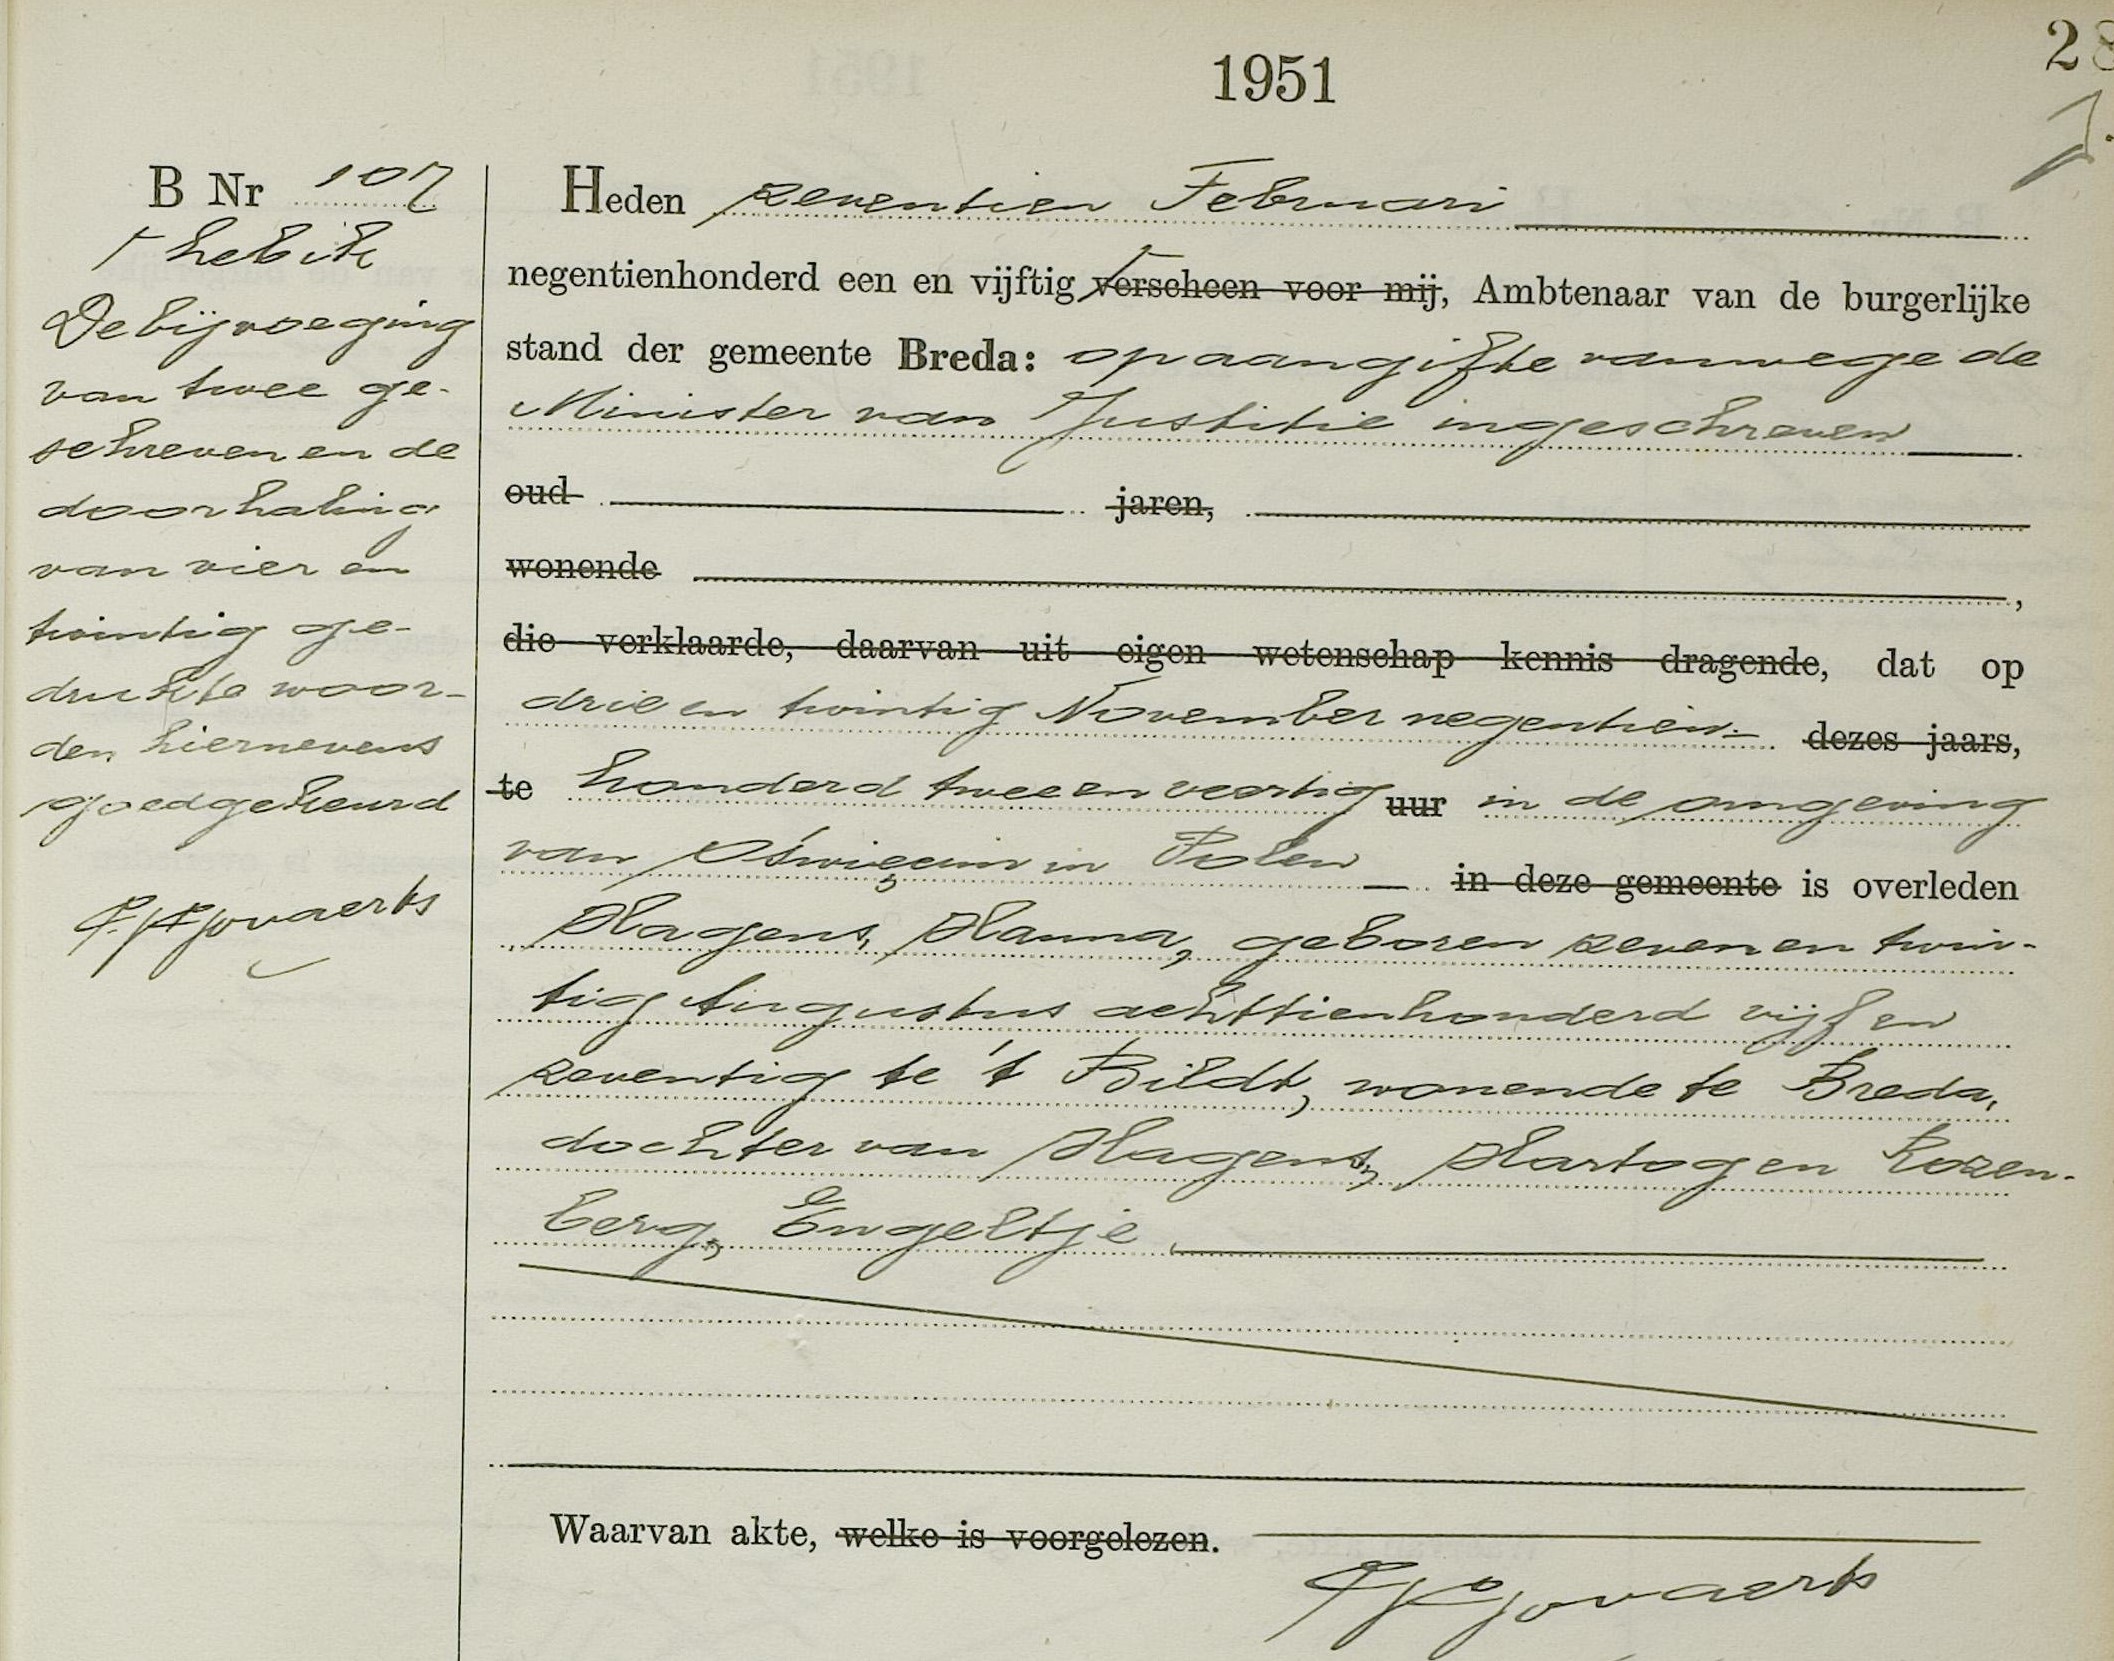 1951
28
B Nr 107
⊢ heb ik
De bijvoeging
van twee ge-
schreven en de
doorhaling
van vier en
twintig ge-
drukte woor-
den hiernevens
goedgekeurd
Govaerts
Heden zeventien Februari
negentienhonderd een en vijftig ⊢ verscheen voor mij, Ambtenaar van de burgerlijke
stand der gemeente Breda: op aangifte vanwege de
Minister van Justitie ingeschreven
oud jaren,
wonende ,
die verklaarde, daarvan uit eigen wetenschap kennis dragende, dat op
drie en twintig November negentien- dezes jaars,
te honderd twee en veertig uur in de omgeving
van Oświęcim in Polen in deze gemeente is overleden
Hagens, Hanna, geboren zeven en twin-
tig Augustus achttienhonderd vijf en
zeventig te 't Bildt, wonende te Breda,
dochter van Hagens, Hartog en Rozen-
berg, Engeltje
Waarvan akte, welke is voorgelezen.
Govaerts